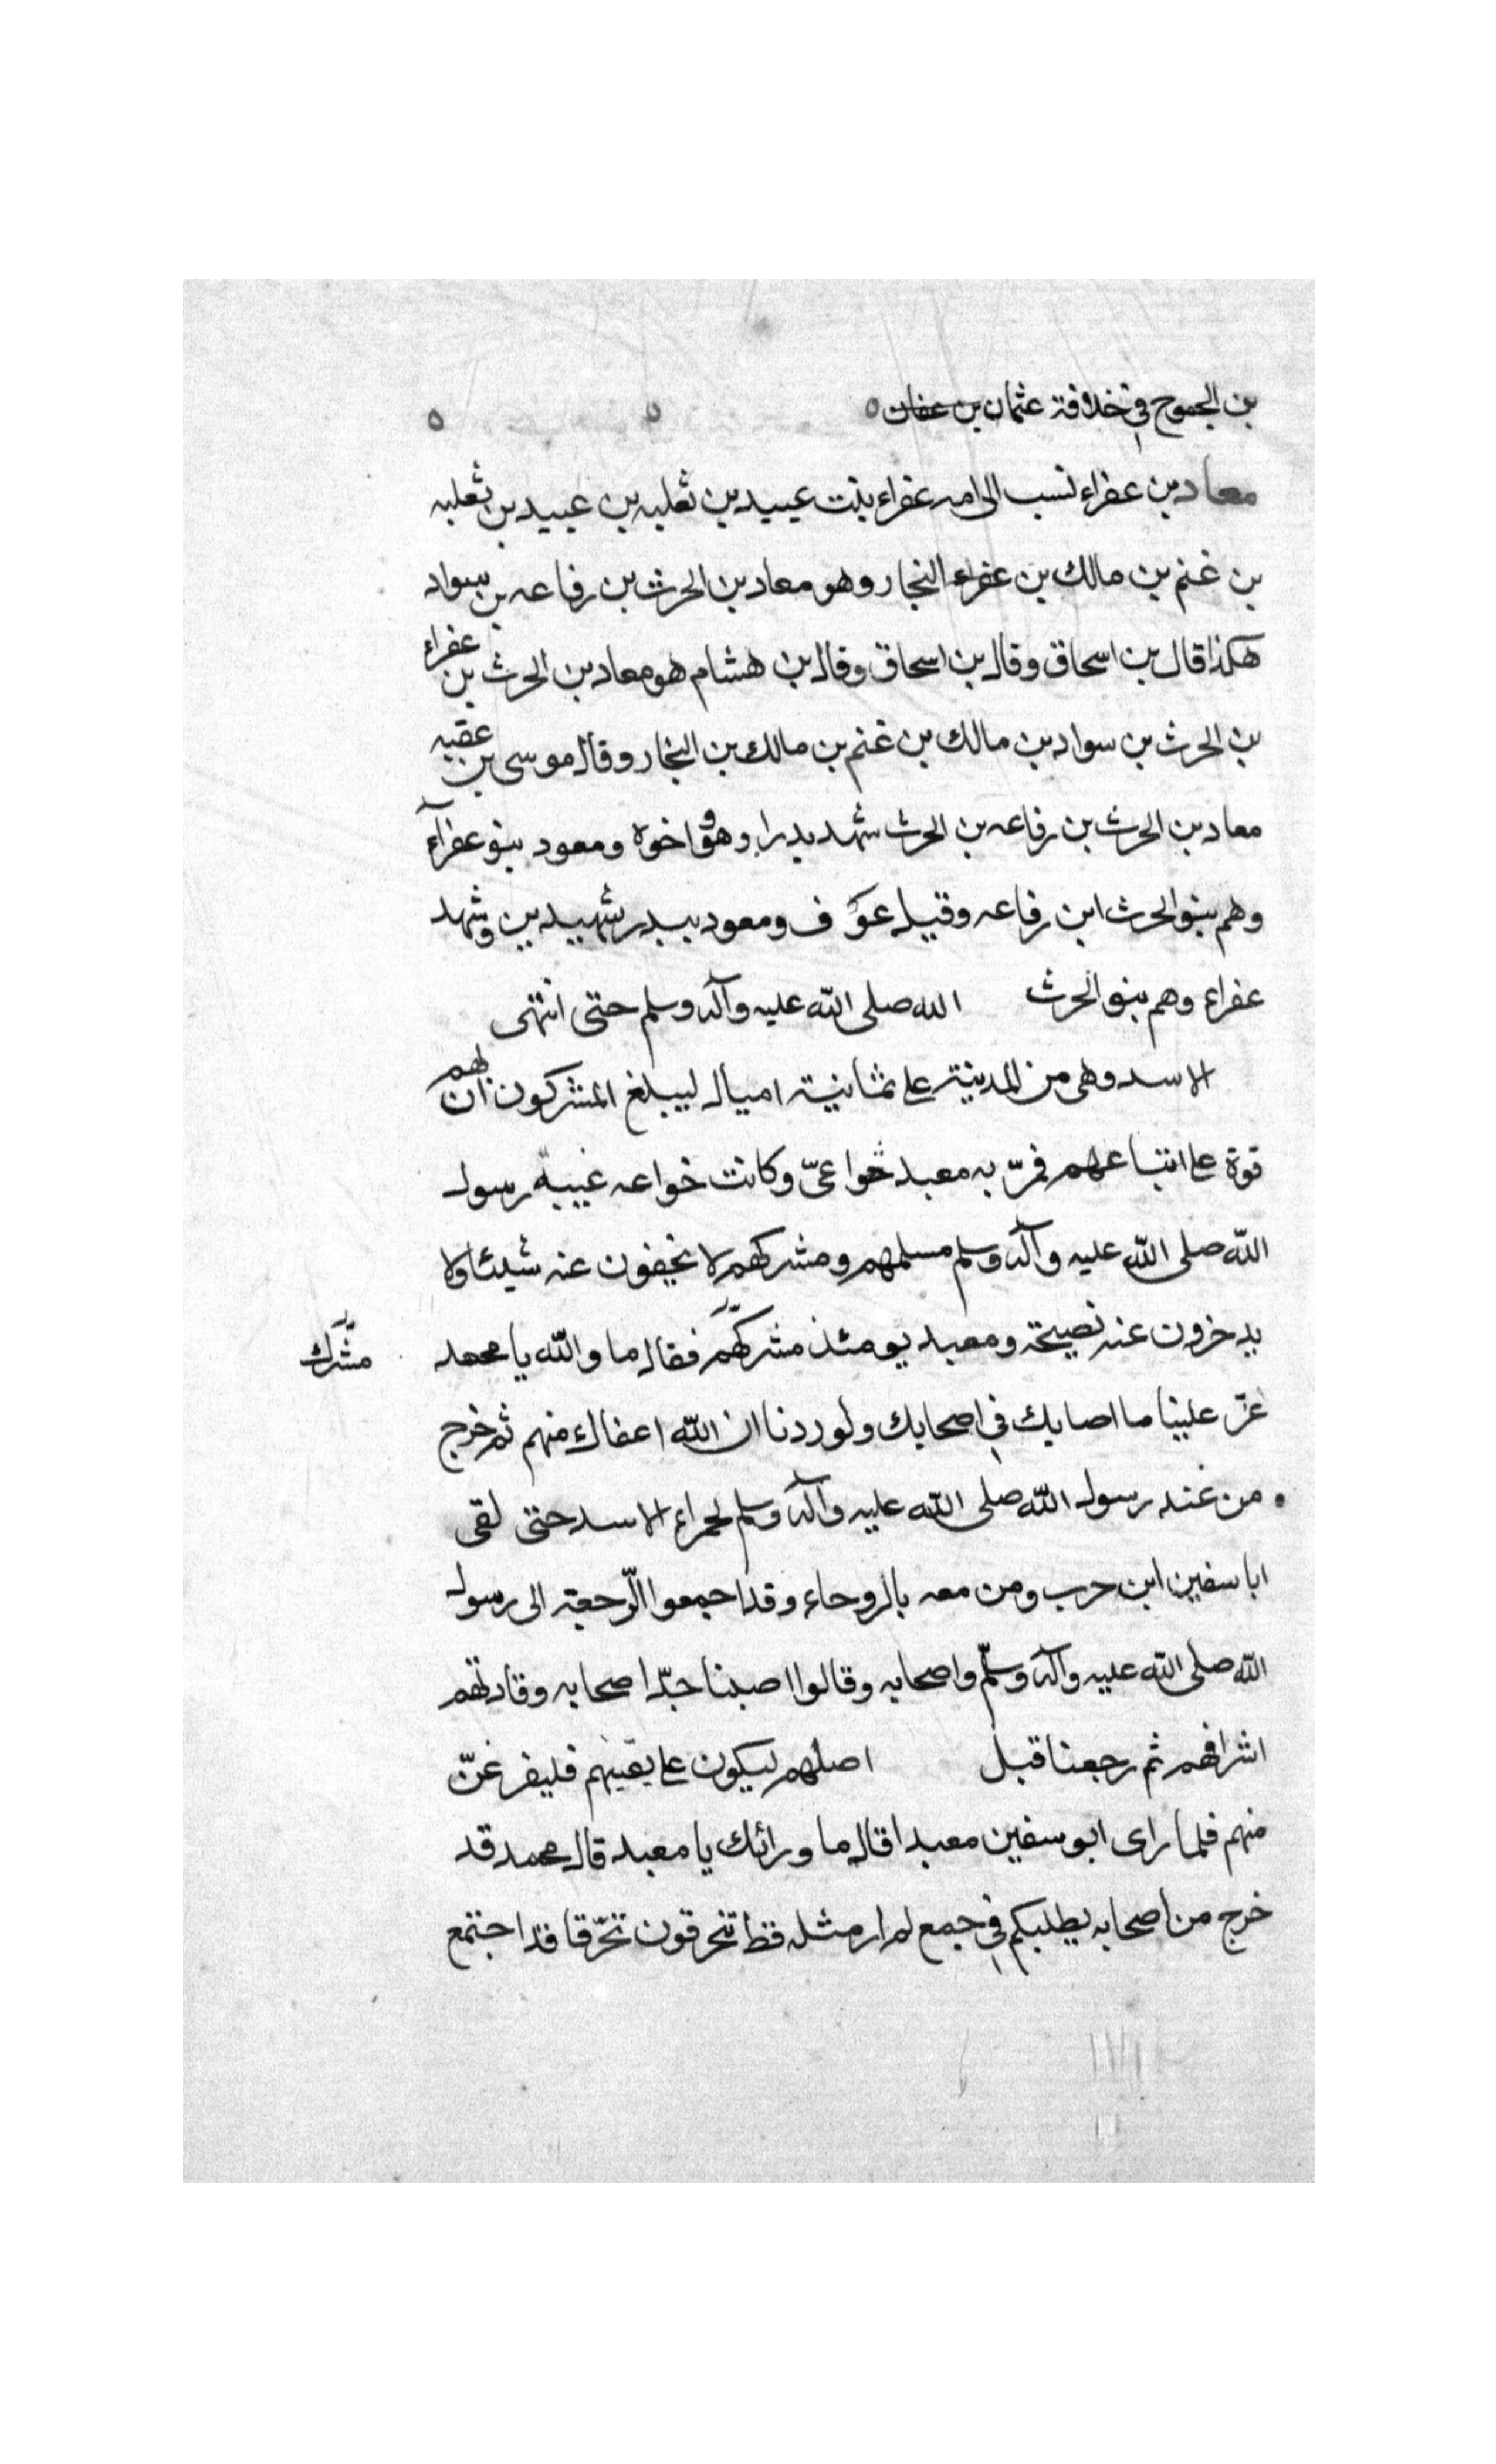 بن الجموح في خلافة عثمان بن عفان ٥ ٥ ٥
معاد بن عفراء نسب الى امه عفراء بنت عبيد بن ثعلبه بن عبيد بن ثعلبه
بن غنم بن مالك بن عفراء النجار وهو معاد بن الحرث بن رفاعه بن سواد
هكذا قال بن اسحاق وقال بن اسحاق وقال بن هشام هو معاد بن الحرث بن عفراء
بن الحرث بن سواد بن مالك بن غنم بن مالك بن النجار وقال موسى بن عقبه
معاد بن الحرث بن رفاعه بن الحرث شهد بدرا وهو واخوه ومعود بنو عفرآء
وهم بنو الحرث ابن رفاعه وقيل عوف ومعود ببدر شهيدين وشهد
عفراء وهم بنو الحرث الله صلى الله عليه وآله وسلم حتى انتهى
الاسد وهى من المدينة على ثمانية اميال ليبلغ المشركون ان لهم
قوة على اتباعهم فمرّ به معبد خواعىّ وكانت خواعه غيبة رسول
الله صلى الله عليه وآله وسلم مسلمهم ومشركهم لا يخيفون عنه شيئا ولا
يدخرون عنه نصيحة ومعبد يومئذ مشركهم فقال ما والله يا محمد
مشرك
عزّ علينا ما اصابك في اصحابك ولوردنا ان الله اعفاك منهم ثم خرج
من عند رسول الله صلى الله عليه وآله وسلم لحمراء الاسد حتى لقى
ابا سفين ابن حرب ومن معه بالروحاء وقد اجمعوا الرّجعة الى رسول
الله صلى الله عليه وآله وسلّم واصحابه وقالوا اصبنا جدّ اصحابه وقادتهم
اشرافهم ثم رجعنا قبل اصلهم ليكون على بقيتهم فليفرغنّ
منهم فلما راى ابو سفين معبدا قال ما ورائك يا معبد قال محمد قد
خرج من اصحابه يطلبكم في جمع لم ار مثله قط تنحرقون تحرّقا قد اجتمع